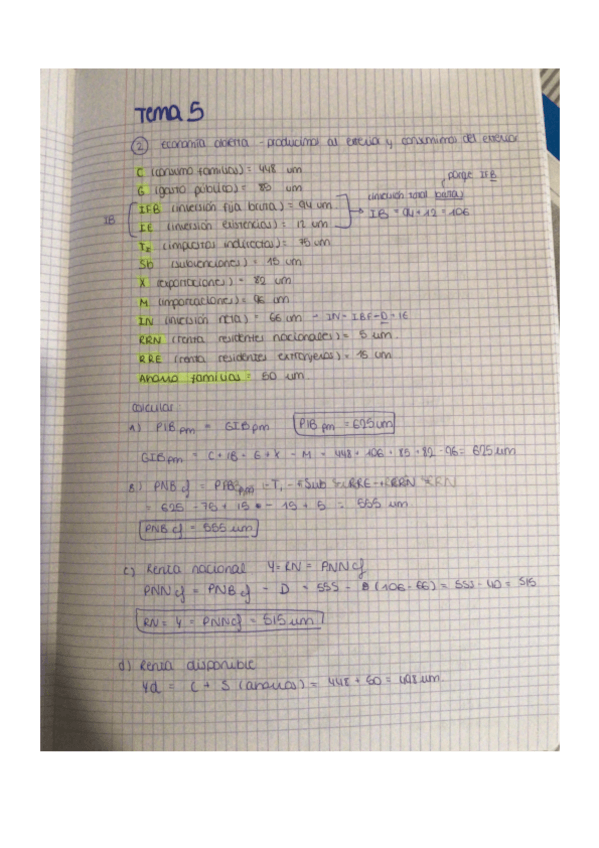 Tema 5
② Economía abierta - producimos al exterior y consumimos del exterior
C (consumo familias) = 448 um
G (gasto público) = 85 um
porque IFB
IFB (inversión fija bruta) = 94 um
(inversión total bruta)
IB
IB = 94 + 12 = 106
IE (inversión existencias) = 12 um
(impuestos indirectos) = 75 um
Sb (subvenciones) = 15 um
X (exportaciones) = 82 um
M (importaciones) = 96 um
IN (inversión neta) = 66 um → IN = IBF - D + IE
RRN (renta residentes nacionales) = 5 um.
RRE (renta residentes extranjeros) = 15 um
Ahorro familias = 50 um.
Calcular:
a) PIBpm = GIBpm PIBpm = 625um
GIBpm = C + IB + G + X - M = 448 + 106 + 85 + 82 - 96 = 625um
= 625 - 75 + 15 - 15 + 5 = 555 um.
PNBcf = 555 um
c) Renta nacional Y = RN = PNNcf
PNNcf = PNBcf - D = 555 - (106 - 66) = 555 - 40 = 515
RN = Y = PNNcf = 515 um
d) Renta disponible
Yd = C + S (ahorros) = 448 + 50 = 498 um.